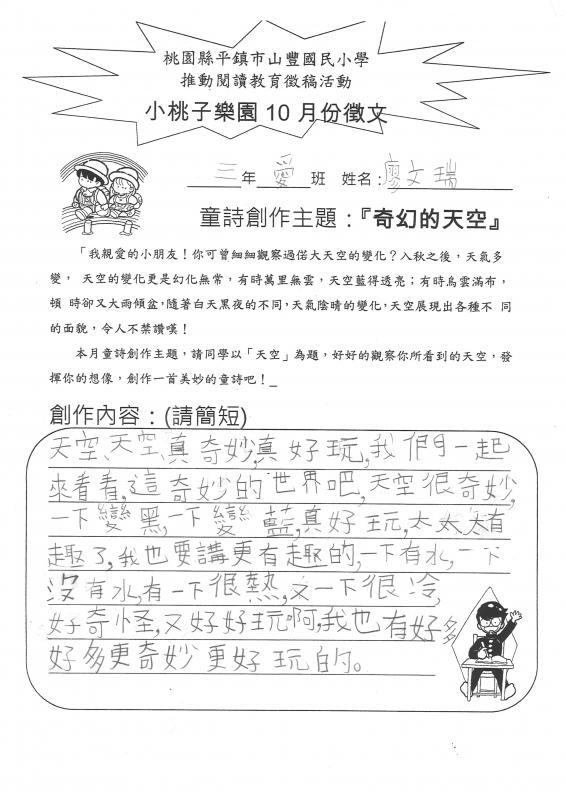 桃園縣平鎮市山豐國民小學
推動閱讀教育徵稿活動
小桃子樂園 10 月份徵文
三年 愛 班 姓名:廖文瑞
童詩創作主題:『奇幻的天空』
「我親愛的小朋友!你可曾細細觀察過偌大天空的變化?入秋之後,天氣多
變, 天空的變化更是幻化無常,有時萬里無雲,天空藍得透亮;有時烏雲滿布,
頓 時卻又大雨傾盆,隨著白天黑夜的不同,天氣陰晴的變化,天空展現出各種不 同
的面貌,令人不禁讚嘆!
本月童詩創作主題,請同學以「天空」為題,好好的觀察你所看到的天空,發
揮你的想像,創作一首美妙的童詩吧!_
創作內容:(請簡短)
天空、天空、真奇妙,真好玩,我們一起
來看看,這奇妙的世界吧,天空很奇妙,
一下變黑,一下變藍,真好玩,太太太有
趣了,我也要講更有趣的,一下有水,一下
沒有水,有一下很熱,又一下很冷,
好奇怪,又好好玩啊,我也有好多
好多更奇妙更好玩的。